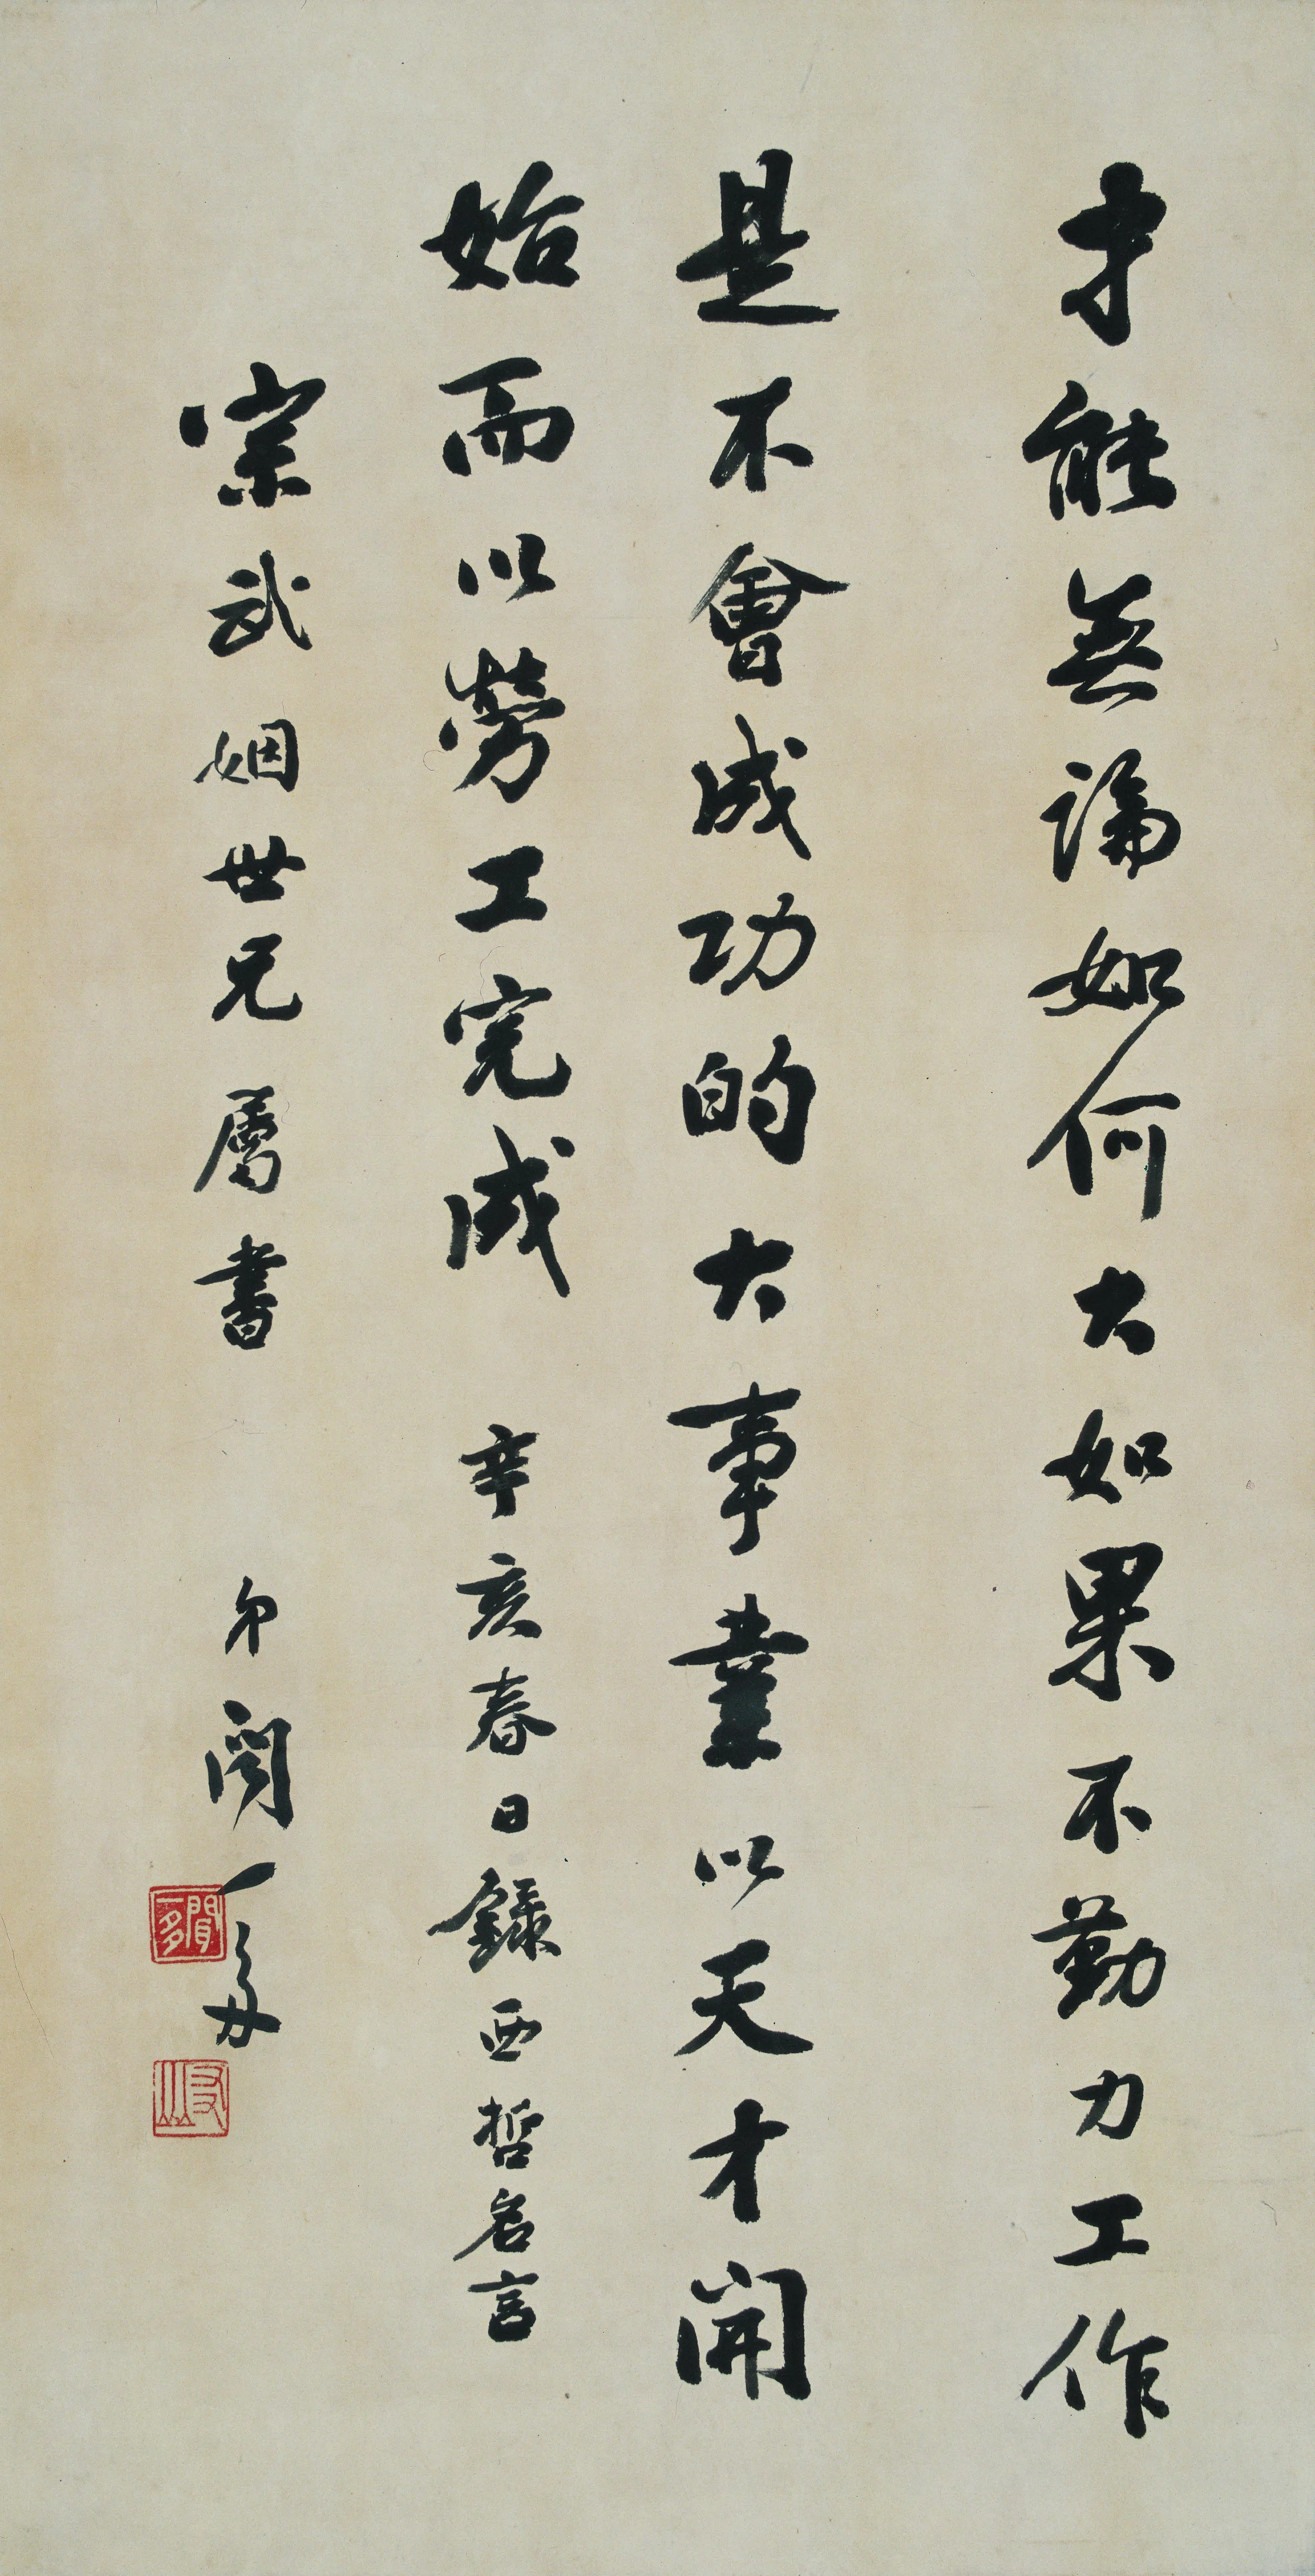 才能無論如何大如果不勤力工作
是不會成功的大事業以天才開
始而以勞工完成 辛亥春日錄西哲名言
宗武姻世兄屬書 弟聞一多
聞一多